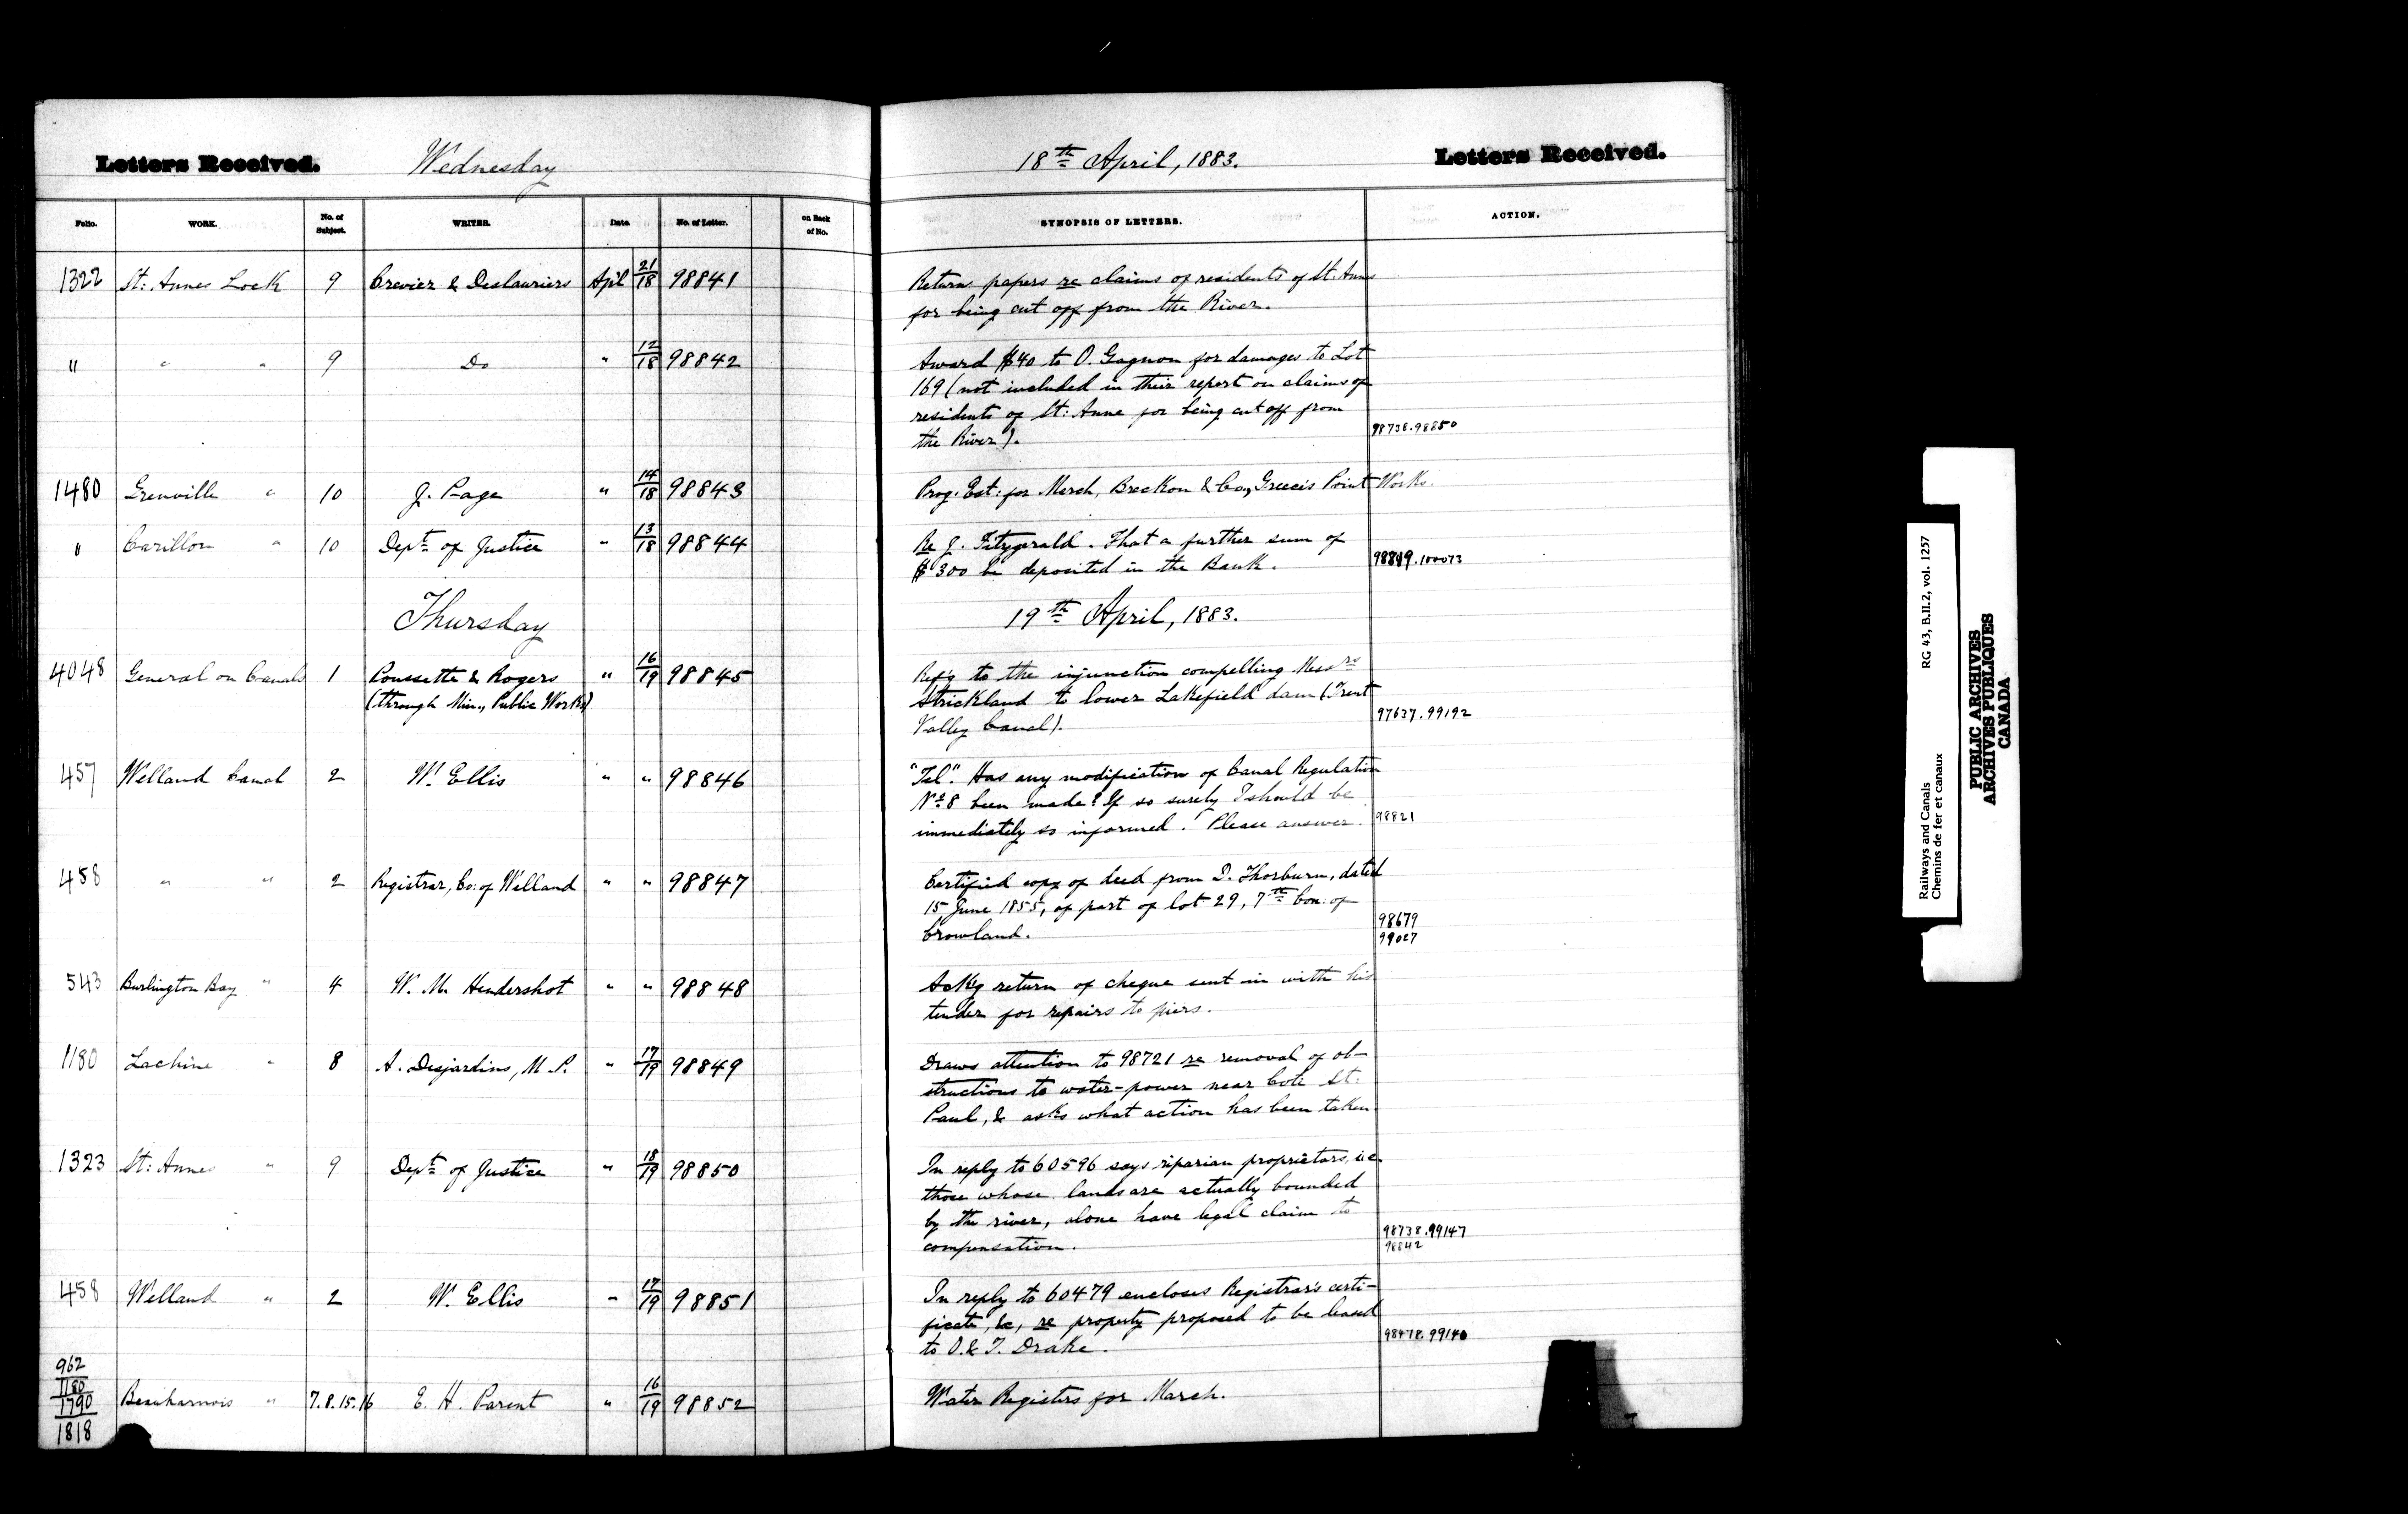 Letters Received. Wednesday 18th April, 1883. Letters Received.
Folio. WORK. No. of Subject. WRITER. Date. No. of Letter. on Back of No. SYNOPSIS OF LETTERS. ACTION.
1322 St: Annes Lock 9 Crevier & Deslauriers Apl 21/18 98841 Return papers re claims of residents of St. Annes
for being cut off from the River.
" " " 9 Do " 12/18 98842 Award $40 to O. Gagnon for damages to Lot
169 (not included in their report on claims of
residents of St: Anne for being cut off from
the River). 98738.98850
1480 Grenville " 10 J. Page " 14/18 98843 Prog. Est: for March, Breckon & Co., Greece's Point Works.
" Carillon " 10 Dept of Justice " 13/18 98844 Re J. Fitzgerald. That a further sum of
$300 be deposited in the Bank. 100073
Thursday 19th April, 1883.
4048 General on Canals 1 Poussette & Rogers " 16/19 98845 Ref'g to the injunction compelling Messrs
(through Min., Public Works) Strickland to lower Lakefield dam (Trent
Valley Canal). 97637.99192
457 Welland Canal 2 W. Ellis " " 98846 "Tel". Has any modification of Canal Regulation
No 8 been made? If so surely I should be
immediately so informed! Please answer. 98821
458 " " 2 Registrar, Co: of Welland " " 98847 Certified copy of deed from D. Thorburn, dated
15 June 1855, of part of lot 29, 7th Con: of
Crowland. 98679
99027
543 Burlington Bay " 4 W. M. Hendershot " " 98848 Ackg return of cheque sent in with his
tender for repairs to piers.
1180 Lachine " 8 A. Desjardins, M.P. " 17/19 98849 Draws attention to 98721 re removal of ob-
structions to water-power near Cote St:
Paul, & asks what action has been taken.
1323 St: Annes " 9 Dept of Justice " 18/19 98850 In reply to 60596 says riparian proprietors, i.e.
those whose lands are actually bounded
by the river, alone have legal claim to
compensation. 98738.99147
98842
458 Welland " 2 W. Ellis " 17/19 98851 In reply to 60479 encloses Registrar's certi-
ficate, &c, re property proposed to be leased
to O. & T. Drake. 98478.99140
962
1180
1790
1818 Beauharnois " 7.8.15.16 E. H. Parent " 16/19 98852 Water Registers for March.
Railways and Canals RG 43, B.II.2, vol. 1257
Chemins de fer et canaux
PUBLIC ARCHIVES
ARCHIVES PUBLIQUES
CANADA